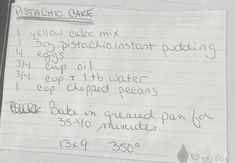 PISTACHIO CAKE
1 yellow cake mix
1 3oz pistachio instant pudding
4 eggs
3/4 cup oil
3/4 cup + 1 tb water
1 cup chopped pecans
Bake in greased pan for
35-40 minutes
13x9 350°